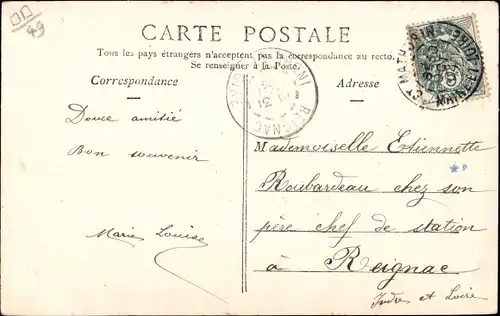 49
CARTE POSTALE
Tous les pays étrangers n'acceptent pas la correspondance au recto.
Se renseigner à la Poste.
Correspondance
Adresse
REIGNAC
Douce amitié
Bon souvenir
Marie Louise
Mademoiselle Etiennette
Roubardeau chez son
père chef de station
à Reignac
Indre et Loire